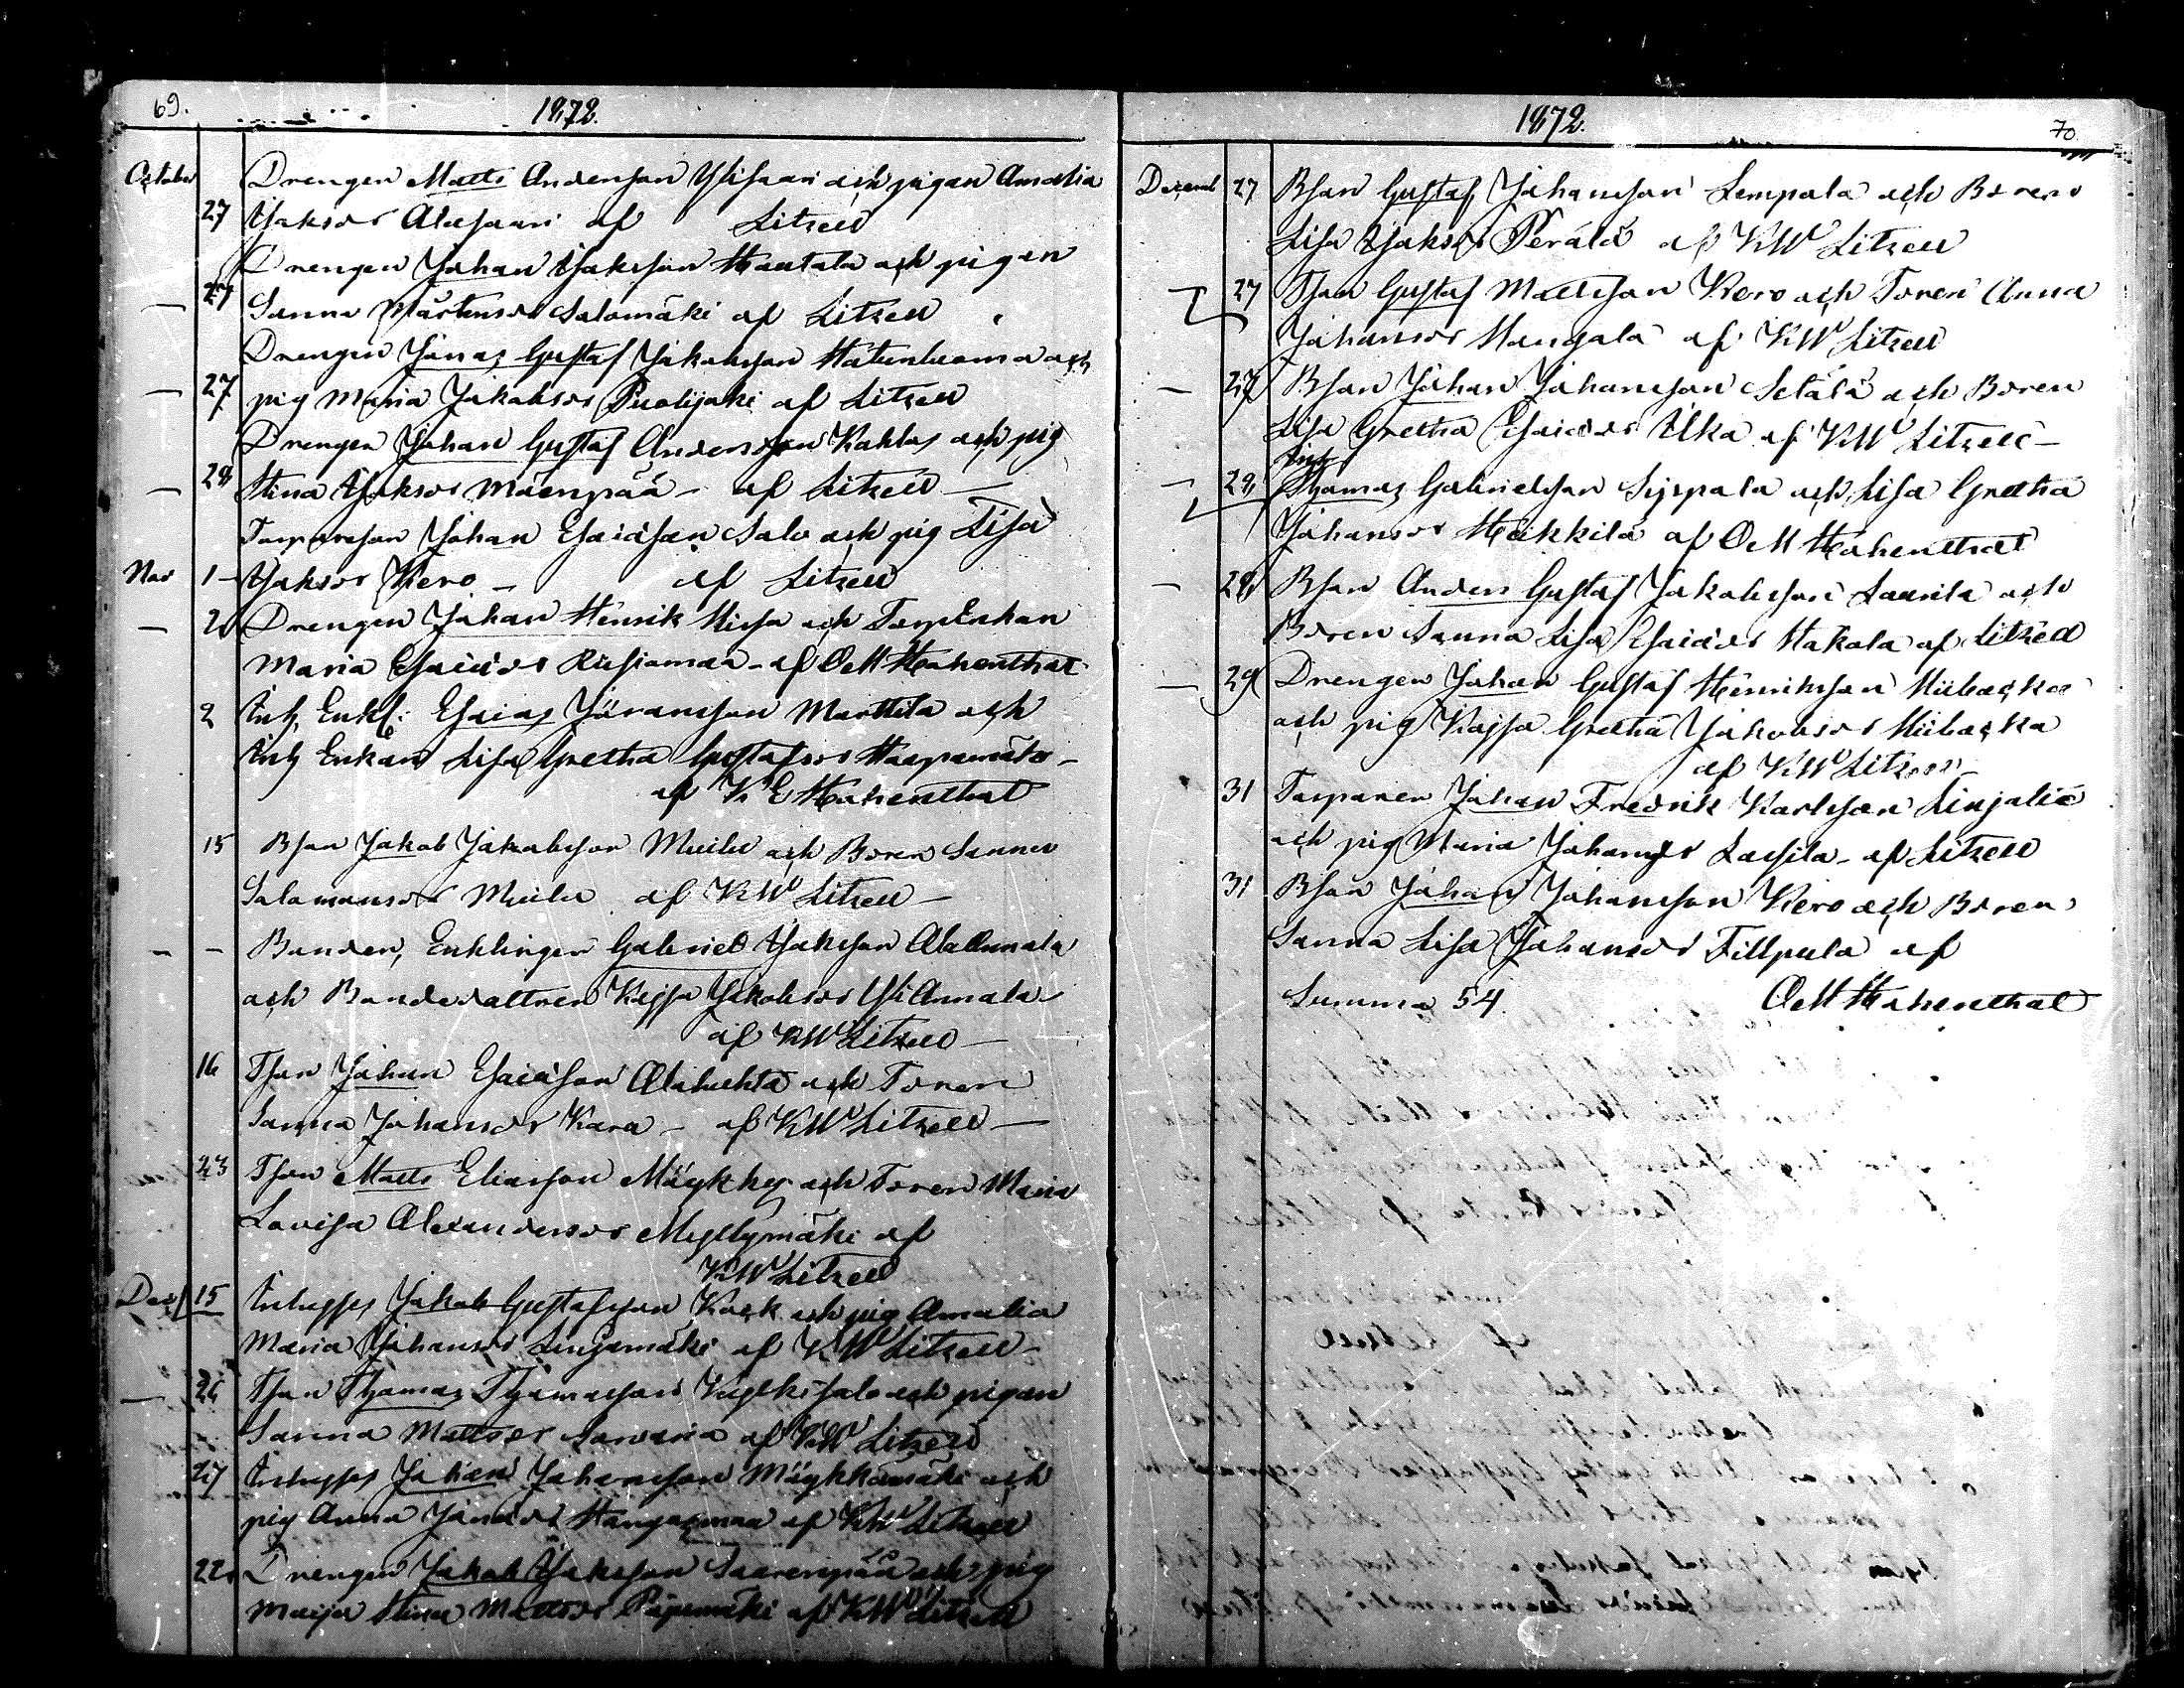 69.
1872.
October
Drengen Matts Andersson Ylisaari och pigan Amalia
27 Jaksdr Alasaari af Litzell
Drengen Johan Jaksson Hautala och pigan
— 27 Sanna Mårtensdr Salomäki af Litzell
Drengen Jonas Gustaf Jakobsson Hatunluoma och
— 27 pig Maria Jakobsdr Puolijaki af Litzell
Drengen Johan Gustaf Andersson Kahlos och pig
— 28 Stina Jaksdr Mäenpää - af Litzell —
Torparesson Johan Esaiasson Salo och pig Lisa
Nov 1 - Jaksdr Kero - af Litzell
— 2 Drengen Johan Henrik Hirsa och TorpEnkan
Maria Esaiadr Ristiamaa - af OcM Hohenthal
2 Inh Enkl: Esaias Göransson Marttila och
Inh Enkan Lisa Gretha Gustafsdr Haapamäki -
af K E Hohenthal
15 Bson Jakob Jakobsson Muilu och Bdren Sanna
Salomonsdr Muilu af KW Litzell —
- - Bonden, Enklingen Gabriel Jaksson AlaAnnala
och Bondedottren Kajsa Jakobsdr YliAnnala
af KW Litzell —
16 Tson Johan Esaiasson Alaluhta och Tdren
Sanna Johansdr Kara - af KW Litzell —
23 Tson Matts Eliasson Mäykky och Tdren Maria
Lovisa Alexandersdr Myllymäki af
KW Litzell
Dec 15 Inhysses Jakob Gustafsson Kock och pig Amalia
Maria Johansdr Linjamäki af KW Litzell -
— 26 Tson Thomas Thomasson Kylkisalo och pigan
Sanna Mattsdr af KW Litzell
27 Inhysses Johan Johansson Mäykkämäki och
pig Anna Jonasdr Hangasmaa af KW Litzell
22 Drengen Jakob Jaksson Saarenpää och pig
Maija Stina Mattsdr Pajumäki af KW Litzell
1872.
70
Decemb 27 Bson Gustaf Johansson Lempala och Bdren
Lisa Jaksdr Perälä af KW Litzell
27 Tson Gustaf Mattsson Kero och Tdren Anna
Johansdr Mangala af KW Litzell
— 27 Bson Johan Johansson Setälä och Bdren
Lisa Gretha Esaiadr Ulka af KW Litzell -
Inh
— 28 Thomas Gabrielsson Sippala och Lisa Gretha
Johansdr Heikkilä af OcM Hohenthal
— 28 Bson Anders Gustaf Jakobsson Laurila och
Bdren Sanna Lisa Esaiadr Hakola af Litzell
— 29 Drengen Johan Gustaf Henriksson Miibacka
och pig Kajsa Gretha Jakobsdr Miibacka
af KW Litzell
31 Torparen Johan Fredrik Karlsson Linjala
och pig Maria Johansdr Lassila - af Litzell
31 Bson Johan Johansson Kero och Bdren
Sanna Lisa Johansdr Fillpula af
Summa 54. OcM Hohenthal